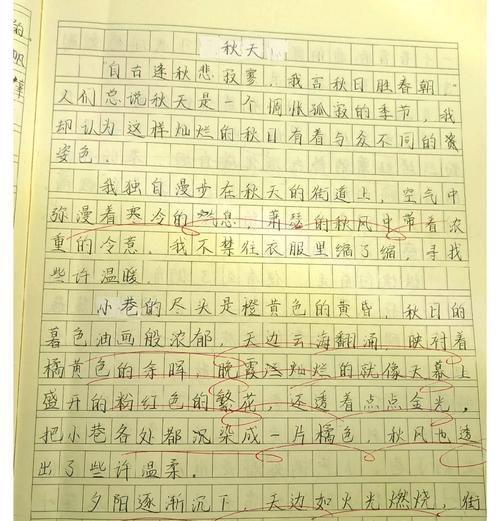 秋天
"自古逢秋悲寂寥，我言秋日胜春朝"
人们总说秋天是一个惆怅孤寂的季节，我
却认为这样灿烂的秋日有着与众不同的资
姿色．
我独自漫步在秋天的街道上，空气中
弥漫着寒冷的气息，萧瑟的秋风中带着浓
重的冷意．我不禁往衣服里缩了缩，寻找
些许温暖．
小巷的尽头是橙黄色的黄昏，秋日的
暮色油画般浓郁，天边云海翻涌，映衬着
橘黄色的余晖．晚霞灿烂的就像天幕上
盛开的粉红色的繁花，还透着点点金光，
把小巷各处都沉染成一片橘色，秋风也透
出了些许温柔．
夕阳逐渐沉下，天边如火光燃烧，街